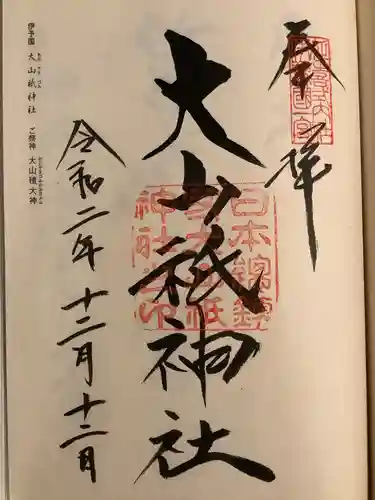 奉拝
大山祇神社
日本總鎮
守大山祇
神社之印
令和二年十二月十二日
伊予国 大山祇神社 ご祭神 大山積大神